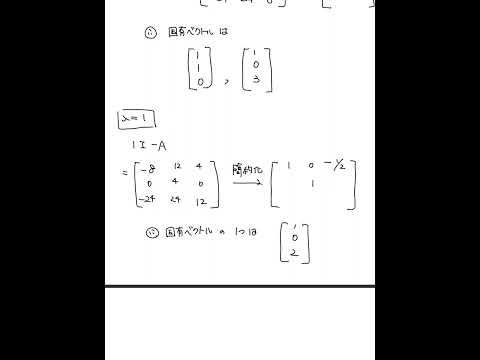 ∵ 固有ベクトル は
[1 1 0] , [1 0 3]
λ=1
1I-A
= [-8 12 4
0 4 0
-24 24 12] 簡約化 → [1 0 -1/2
1 ]
∵ 固有ベクトル の 1つは [1 0 2]